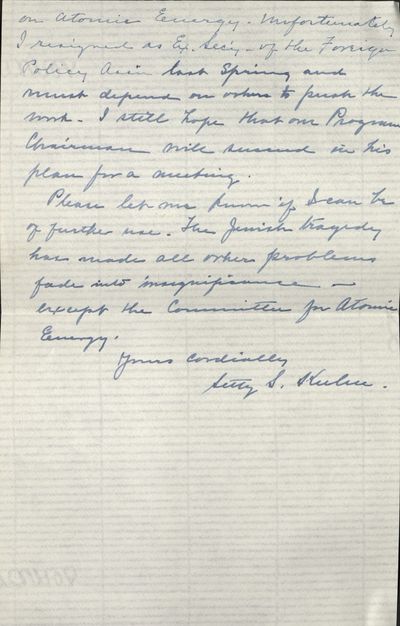 on Atomic Energy. Unfortunately
I resigned as Ex. Secy. of the Foreign
Policy Assn last Spring and
must depend on others to push the
work. I still hope that our Program
Chairman will succeed in his
plan for a meeting.
Please let me know if I can be
of further use. The Jewish tragedy
has made all other problems
fade into insignificance —
except the Committee for Atomic
Energy.
Yours Cordially
Setty S. Kuhn.